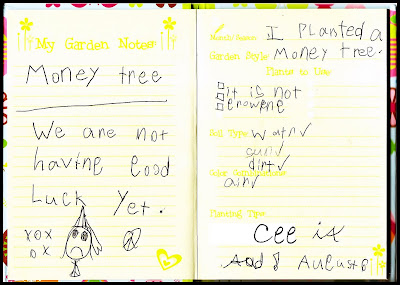 My Garden Notes
Money tree
We are not
having Good
Luck yet.
xox
ox
I PLanted a
Garden Style: Money tree.
Plants to Use
it is not
Soil Type: watr ✓
sun ✓
dirt ✓
Color Combinations
air ✓
Planting Tips:
Cee it
August 8